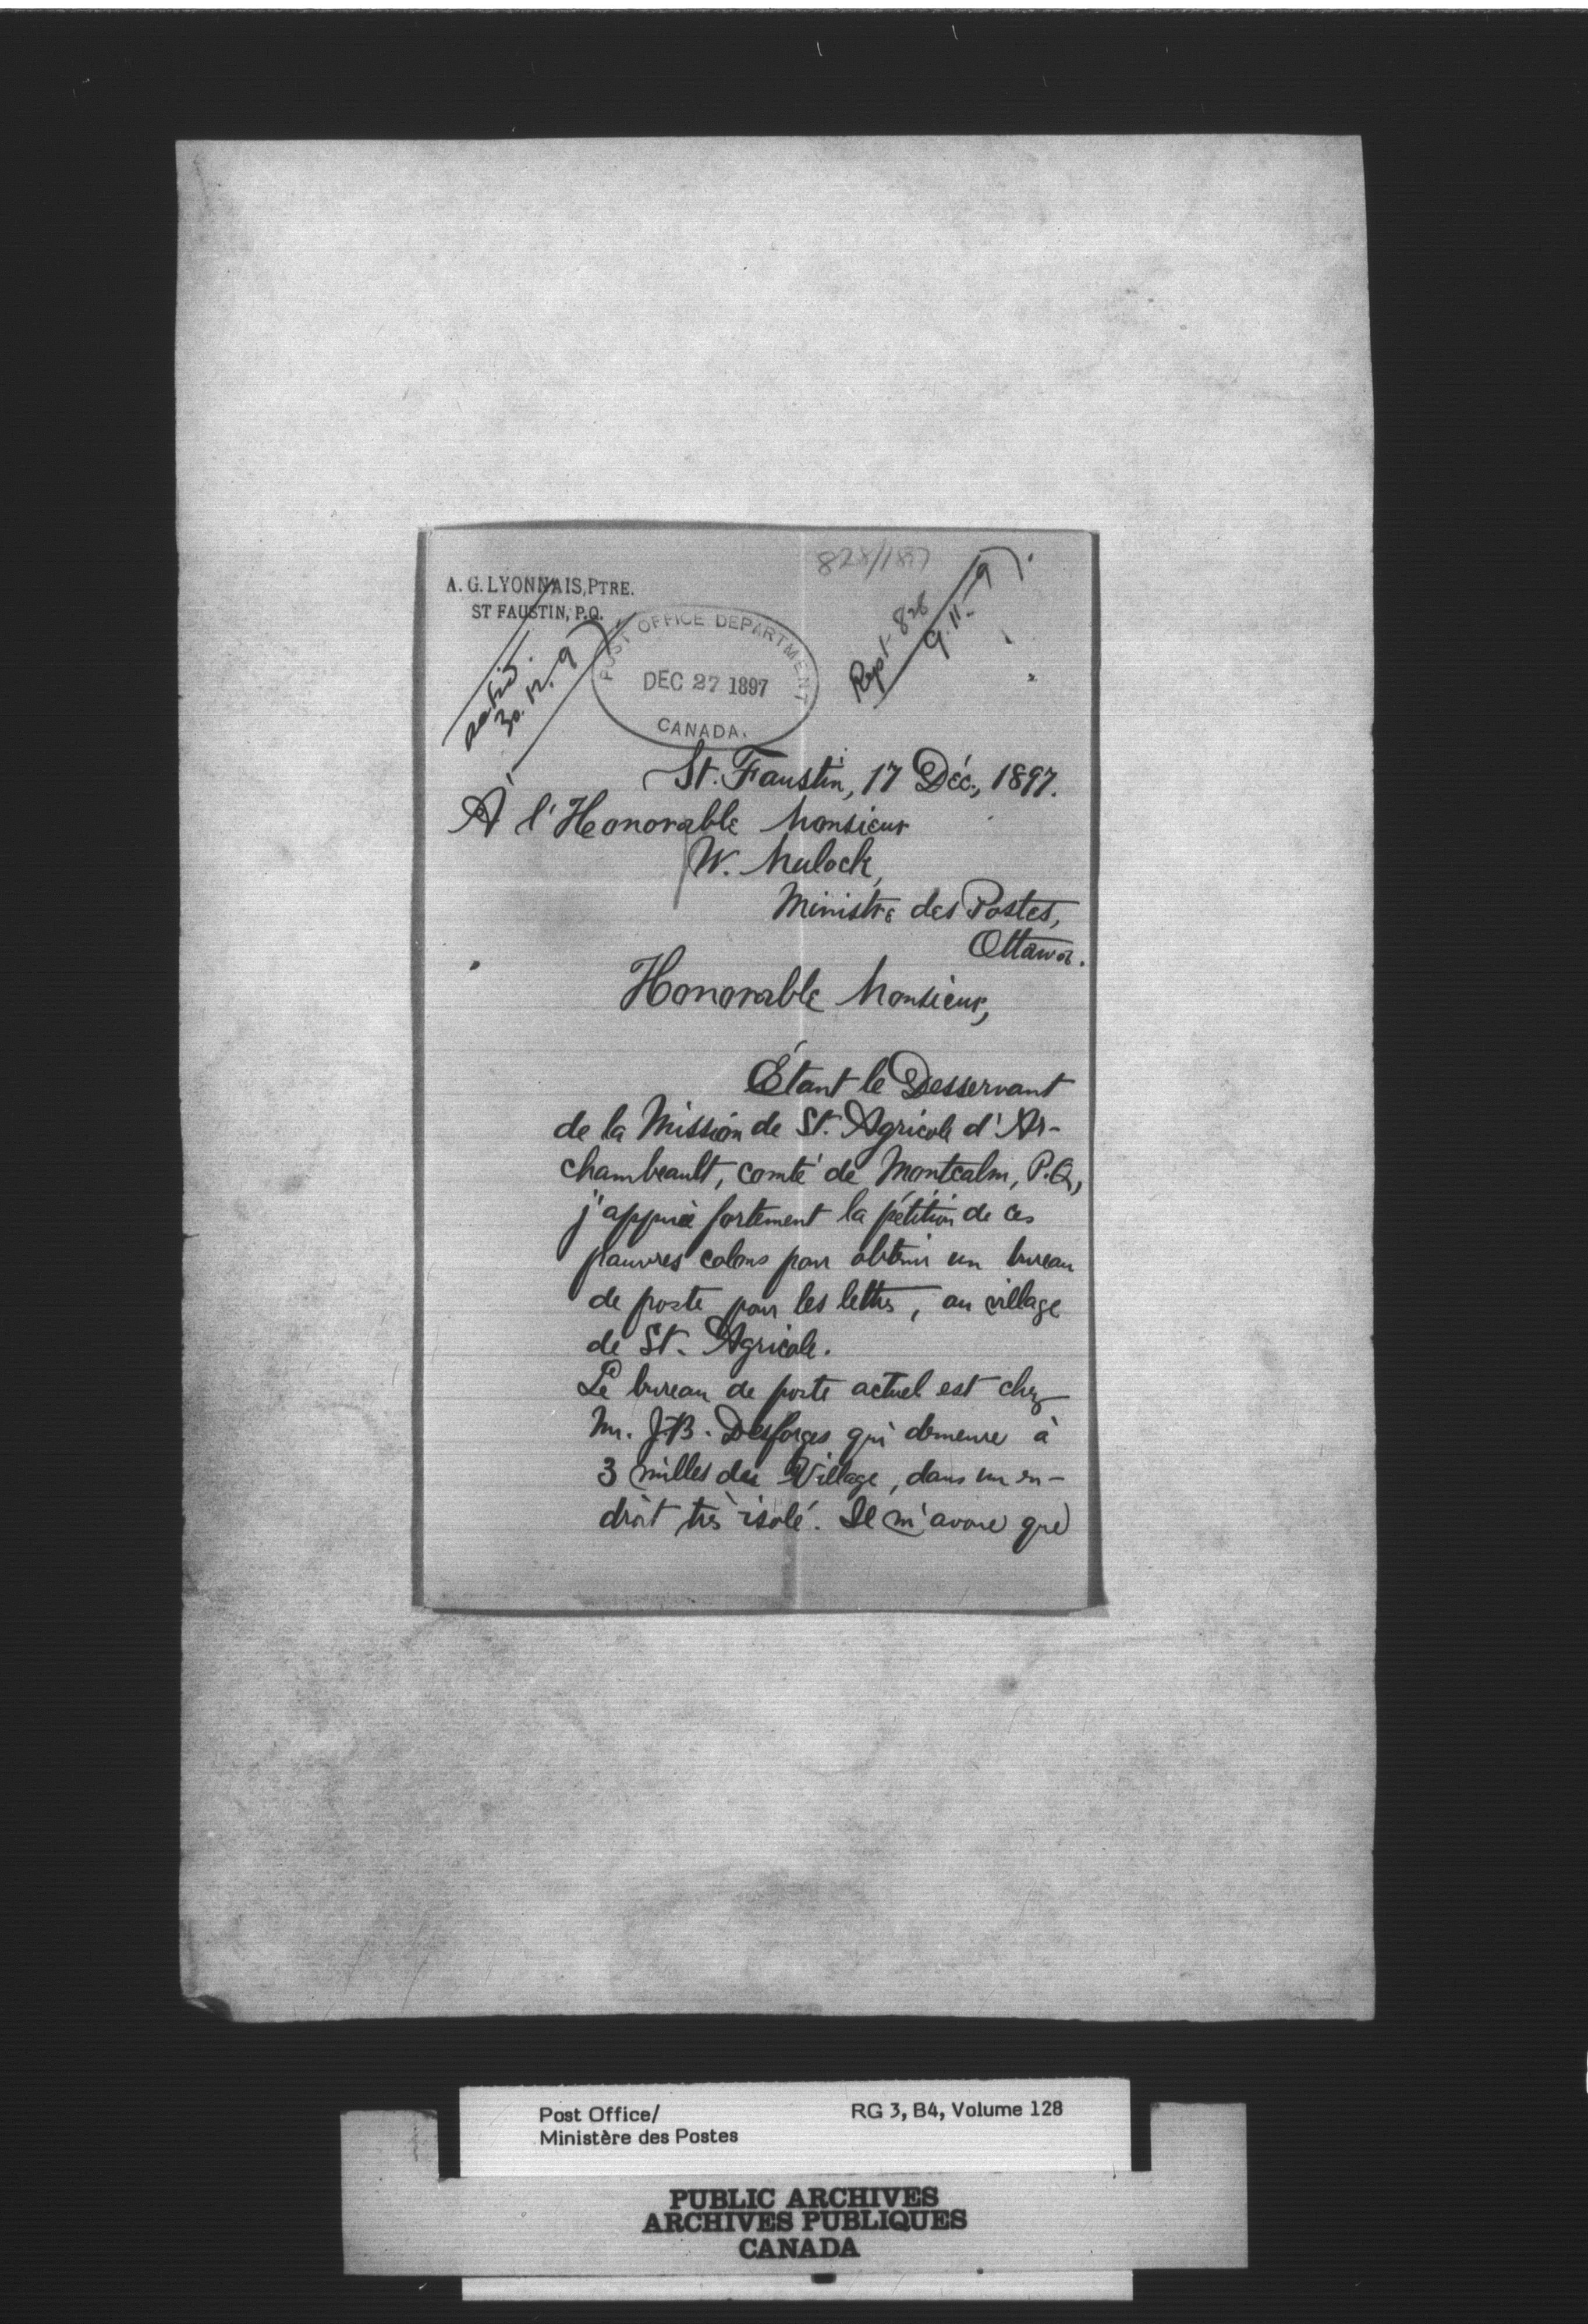 828/1897
A. G. LYONNAIS, PTRE.
ST FAUSTIN, P.Q.
30.12.97
Rept. 828
9.11.97
POST OFFICE DEPARTMENT
DEC 27 1897
CANADA.
St. Faustin, 17 Déc., 1897.
À l'Honorable Monsieur
W. Mulock,
Ministre des Postes,
Ottawa.
Honorable Monsieur,
Étant le Desservant
de la Mission de St. Agricole d'Ar-
chambeault, comté de Montcalm, P.Q.,
j'appuie fortement la pétition de ces
pauvres colons pour obtenir un bureau
de poste pour les lettres, au village
de St. Agricole.
Le bureau de poste actuel est chez
Mr. J-B. Desforges qui demeure à
3 milles du Village, dans un en-
droit très isolé. Il m'avoue que
Post Office/
Ministère des Postes
RG 3, B4, Volume 128
PUBLIC ARCHIVES
ARCHIVES PUBLIQUES
CANADA